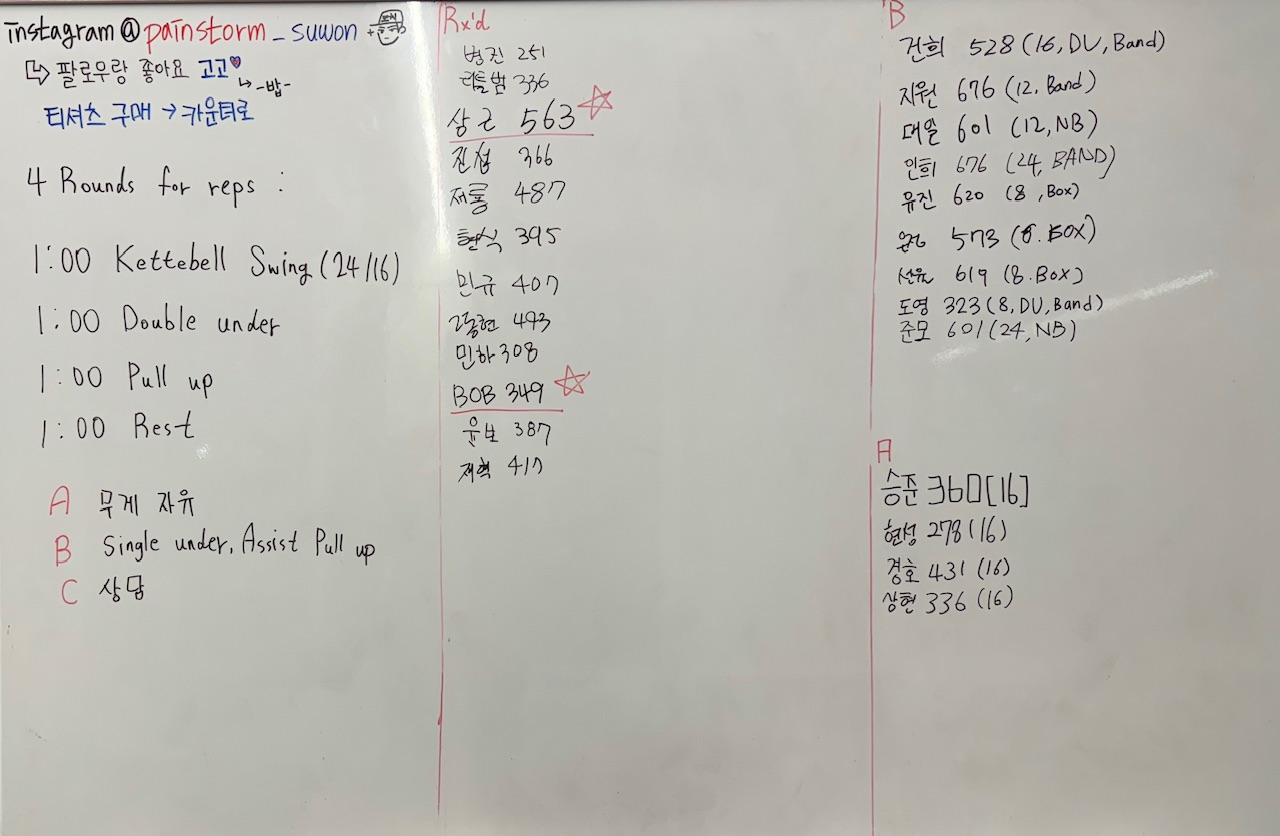 instagram@painstorm_suwon
팔로우랑 좋아요 고고
-밥-
티셔츠 구매 → 카운터로
4 Rounds for reps :
1:00 Kettebell Swing (24/16)
1:00 Double under
1:00 Pull up
1:00 Rest
A 무게 자유
B Single under, Assist Pull up
C 상담
Rx'd
병진 251
리틀범 336
상근 563
진섭 366
재룡 487
현식 395
민규 407
493
민하 308
BOB 349
윤보 387
재혁 417
B
건희 528 (16, DU, Band)
지원 676 (12, Band)
대일 601 (12, NB)
인희 676 (24, BAND)
유진 620 (8, Box)
573 (8. BOX)
선유 619 (8. Box)
도영 323 (8, DU, Band)
준모 601 (24, NB)
A
승준 360 [16]
현성 278 (16)
경호 431 (16)
상현 336 (16)